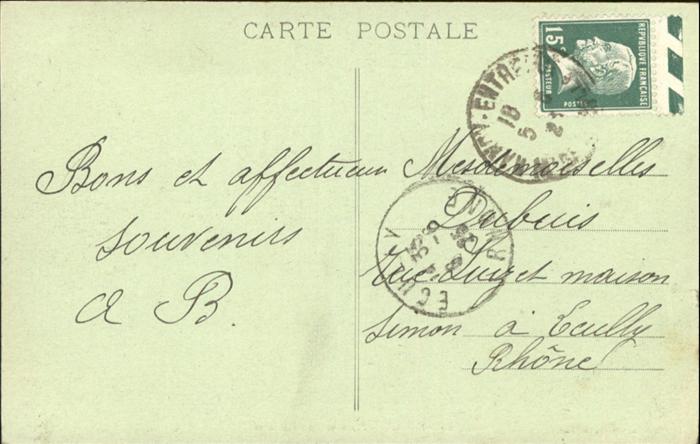 CARTE POSTALE
15c
REPUBLIQUE FRANÇAISE
PASTEUR
POSTES
ENTRE
18
5
Bons et affectueux
souvenirs
A B.
Mesdemoiselles
Dubuis
rue Luizet maison
Simon à Ecully
Rhône
ECULLY
RHONE